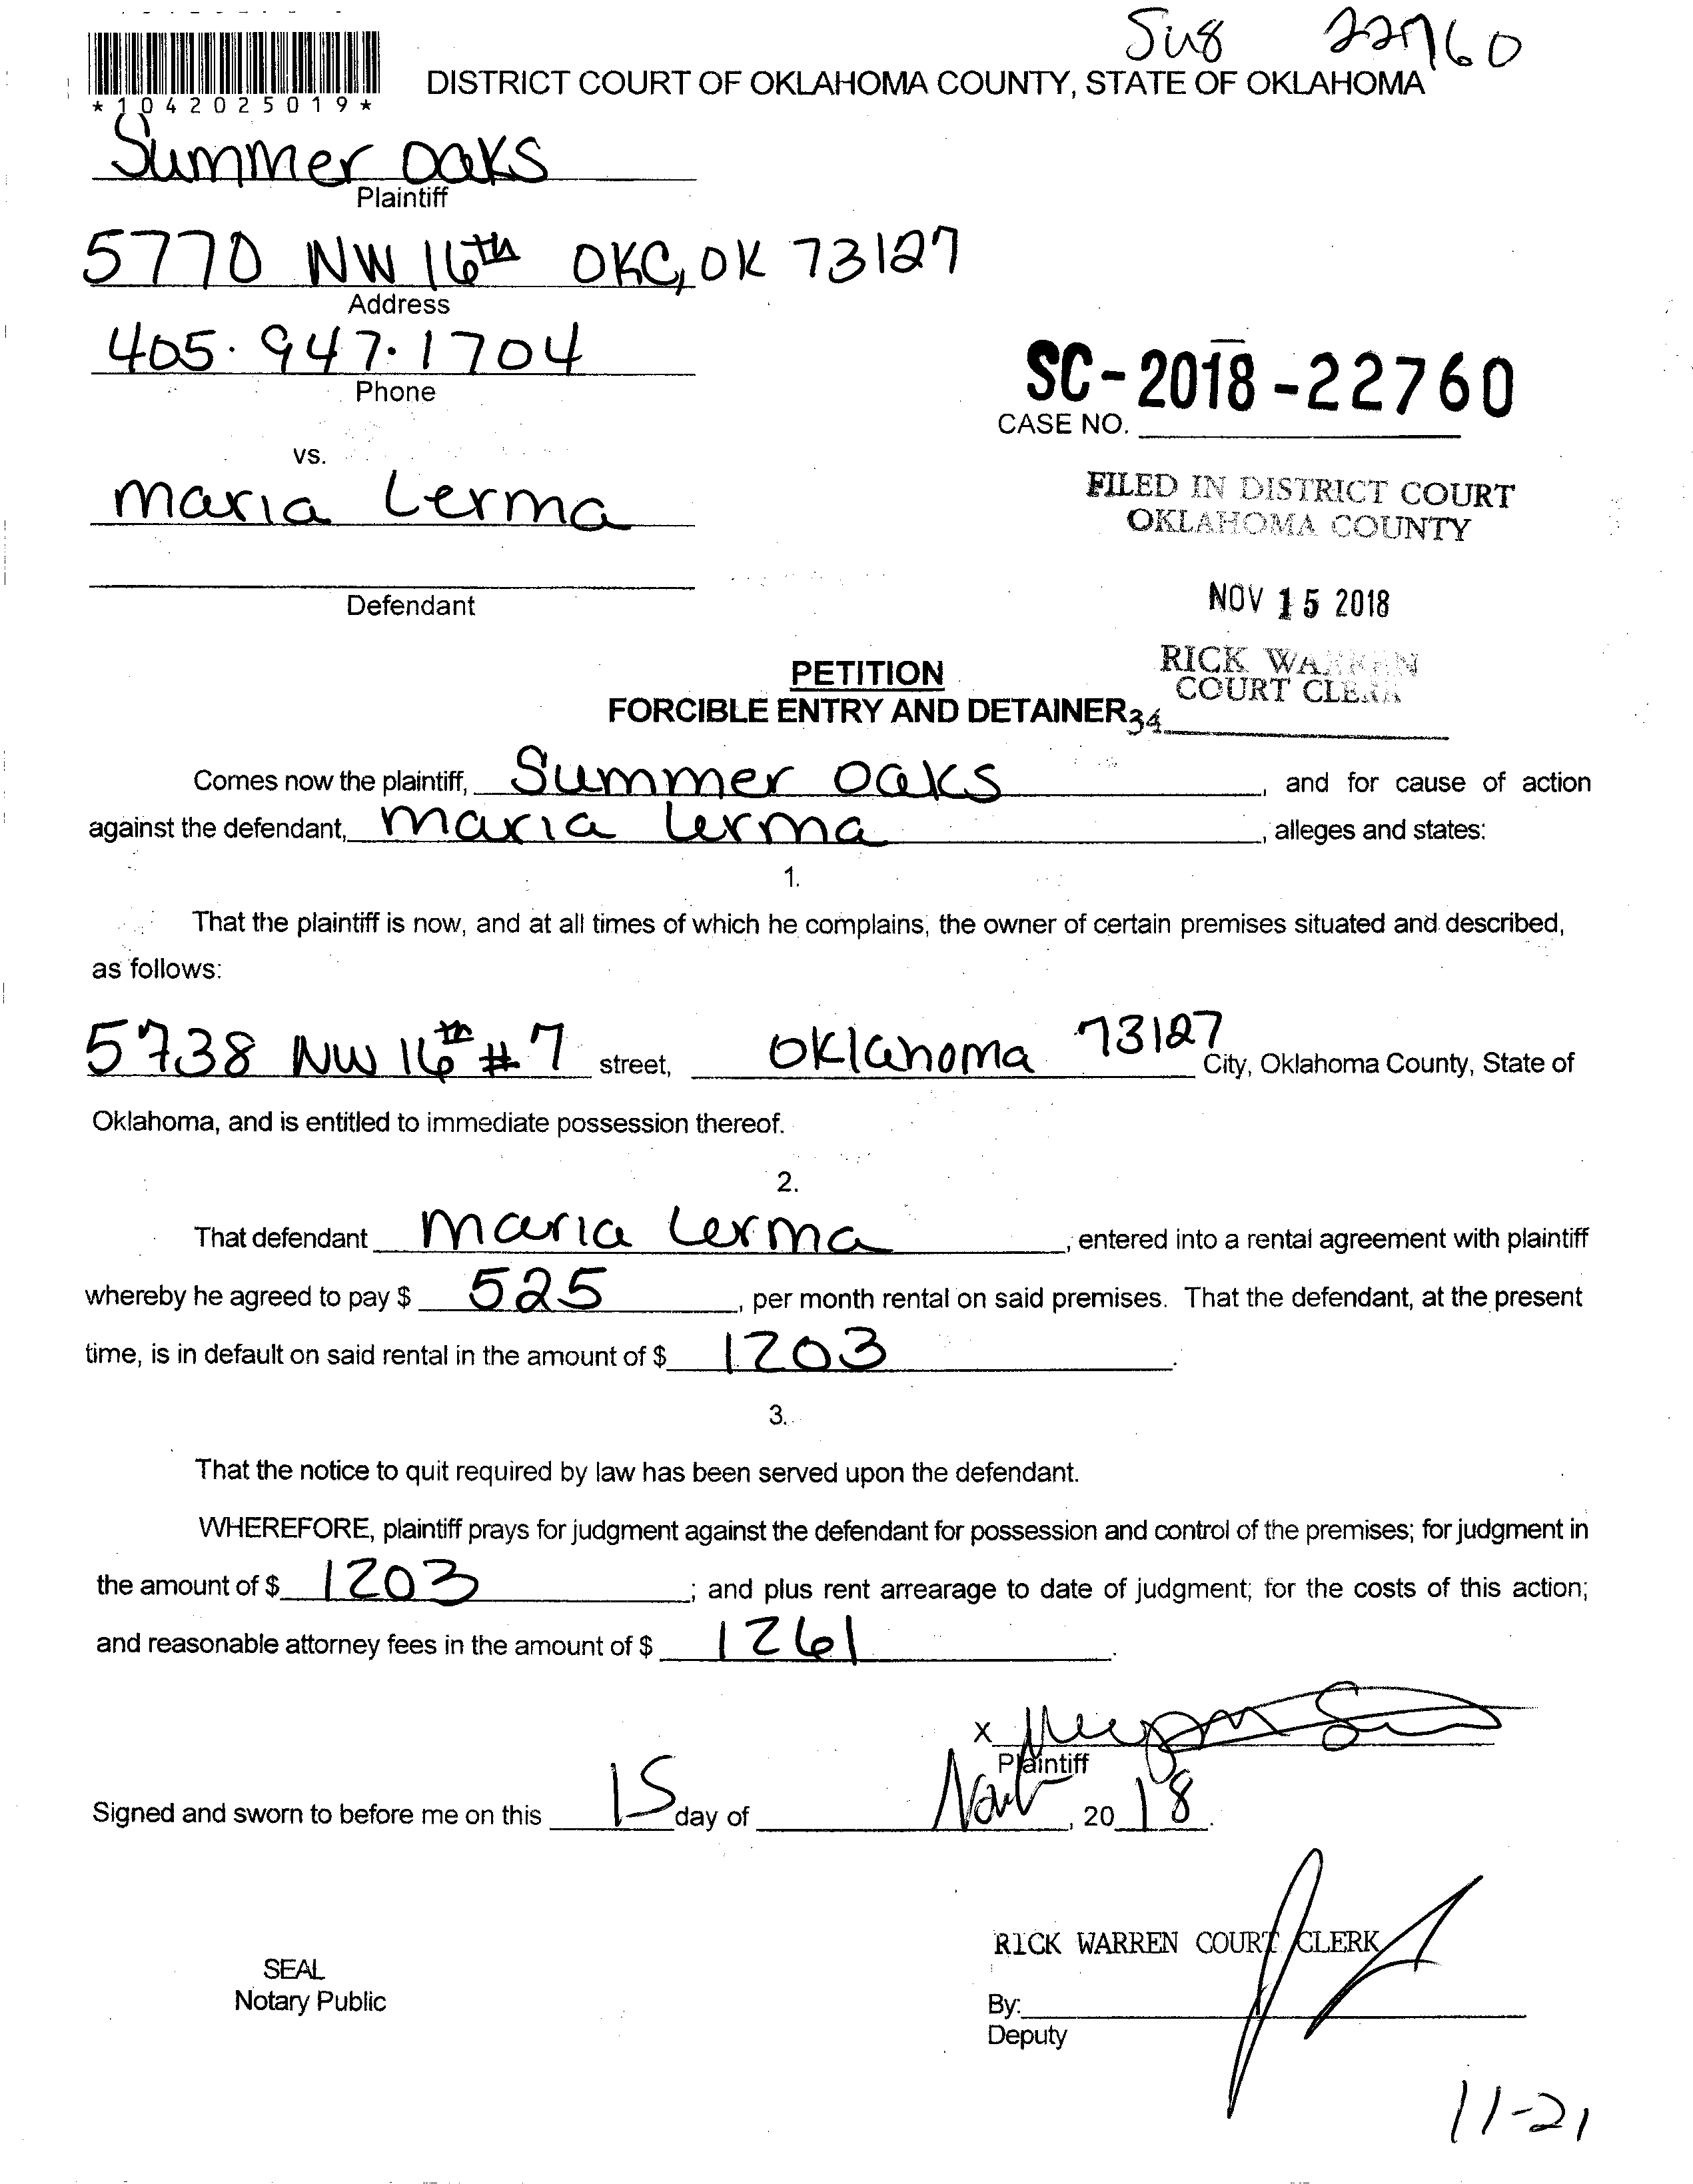 Su8 22760
*1042025019*
DISTRICT COURT OF OKLAHOMA COUNTY, STATE OF OKLAHOMA
Summer Oaks
Plaintiff
5770 NW 16th OKC, OK 73127
Address
405.947.1704
Phone
SC-2018-22760
CASE NO.
vs.
Maria Lerma
Defendant
FILED IN DISTRICT COURT
OKLAHOMA COUNTY
NOV 15 2018
RICK WARREN
COURT CLERK
34
PETITION
FORCIBLE ENTRY AND DETAINER
Comes now the plaintiff, Summer Oaks, and for cause of action
against the defendant, Maria Lerma, alleges and states:
1.
That the plaintiff is now, and at all times of which he complains, the owner of certain premises situated and described,
as follows:
5738 NW 16th #7 street, Oklahoma 73127 City, Oklahoma County, State of
Oklahoma, and is entitled to immediate possession thereof.
2.
That defendant Maria Lerma, entered into a rental agreement with plaintiff
whereby he agreed to pay $ 525, per month rental on said premises. That the defendant, at the present
time, is in default on said rental in the amount of $ 1203.
3.
That the notice to quit required by law has been served upon the defendant.
WHEREFORE, plaintiff prays for judgment against the defendant for possession and control of the premises; for judgment in
the amount of $ 1203; and plus rent arrearage to date of judgment; for the costs of this action;
and reasonable attorney fees in the amount of $ 1261.
X
Plaintiff
Signed and sworn to before me on this 15 day of Nov, 2018.
RICK WARREN COURT CLERK
SEAL
Notary Public
By:
Deputy
11-21